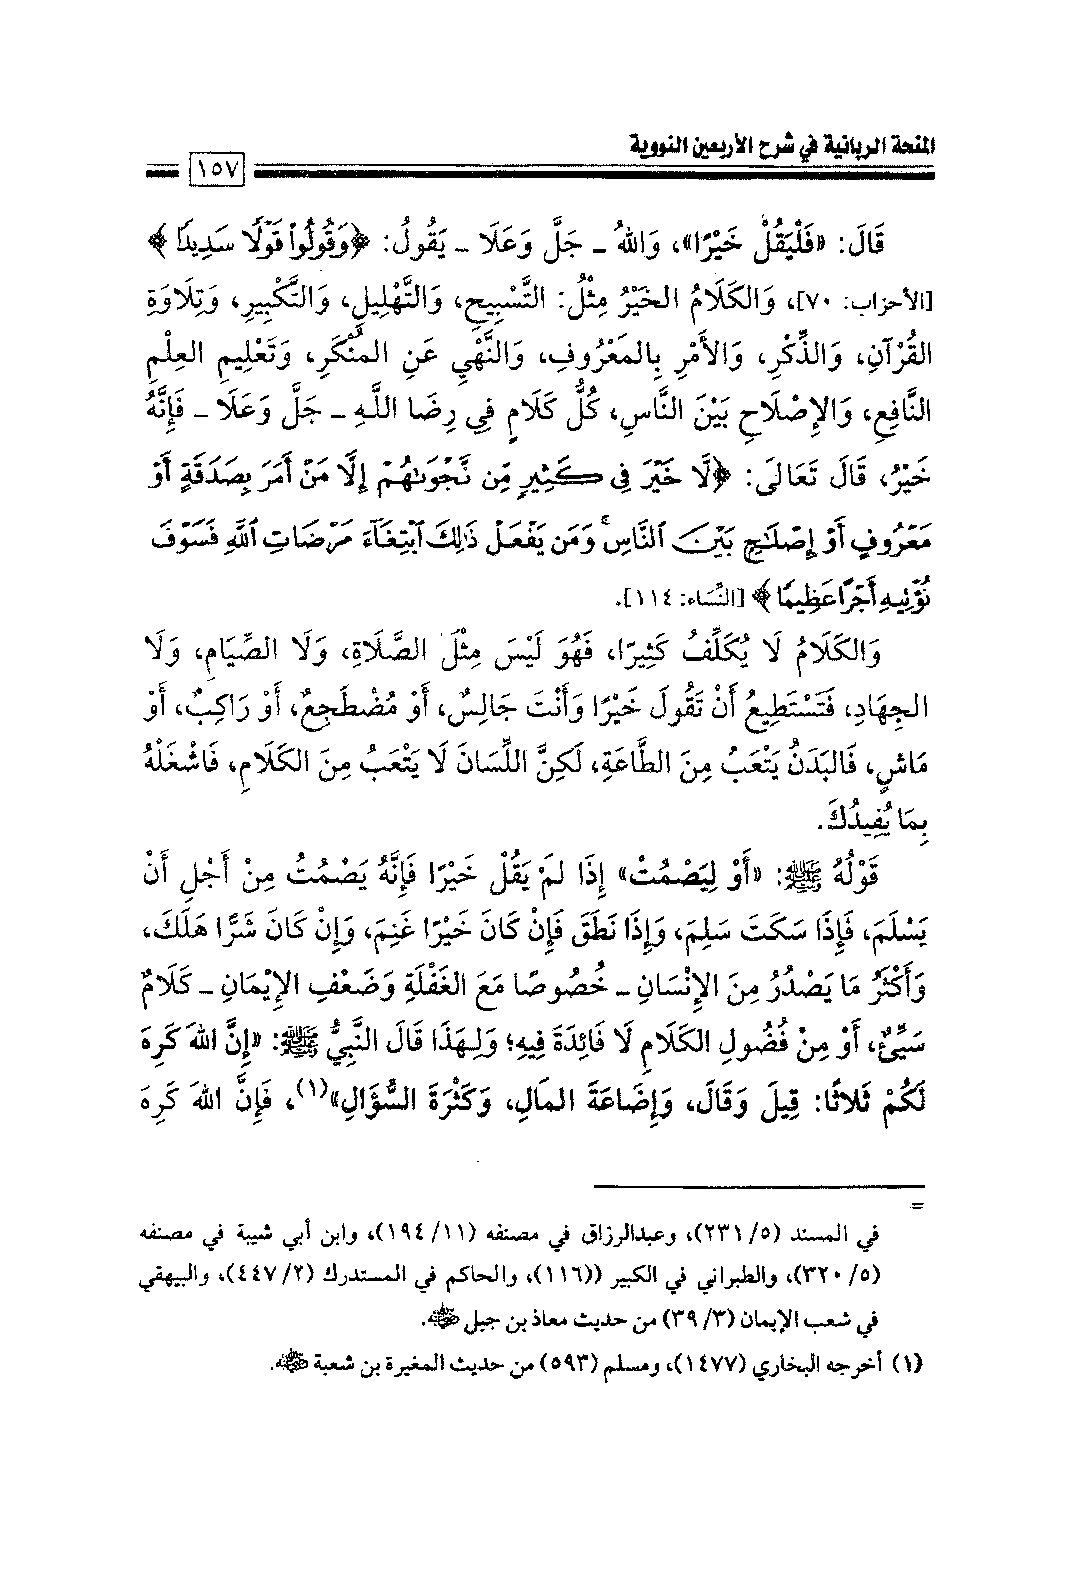 المنحة الربانية في شرح الأربعين النووية
١٥٧
قَالَ: «فَلْيَقُلْ خَيْرًا»، وَاللهُ ـ جَلَّ وَعَلَا ـ يَقُولُ: ﴿وَقُولُوا۟ قَوْلًا سَدِيدًا﴾
[الأحزاب: ٧٠]، وَالكَلَامُ الخَيْرُ مِثْلُ: التَّسْبِيحِ، وَالتَّهْلِيلِ، وَالتَّكْبِيرِ، وَتِلَاوَةِ
القُرْآنِ، وَالذِّكْرِ، وَالأَمْرِ بِالمَعْرُوفِ، وَالنَّهْيِ عَنِ المُنْكَرِ، وَتَعْلِيمِ العِلْمِ
النَّافِعِ، وَالإِصْلَاحِ بَيْنَ النَّاسِ، كُلُّ كَلَامٍ فِي رِضَا اللَّهِ ـ جَلَّ وَعَلَا ـ فَإِنَّهُ
خَيْرٌ، قَالَ تَعَالَى: ﴿لَّا خَيْرَ فِى كَثِيرٍ مِّن نَّجْوَىٰهُمْ إِلَّا مَنْ أَمَرَ بِصَدَقَةٍ أَوْ
مَعْرُوفٍ أَوْ إِصْلَٰحٍ بَيْنَ ٱلنَّاسِ ۚ وَمَن يَفْعَلْ ذَٰلِكَ ٱبْتِغَآءَ مَرْضَاتِ ٱللَّهِ فَسَوْفَ
نُؤْتِيهِ أَجْرًا عَظِيمًا﴾ [النِّسَاء: ١١٤].
وَالكَلَامُ لَا يُكَلِّفُ كَثِيرًا، فَهُوَ لَيْسَ مِثْلَ الصَّلَاةِ، وَلَا الصِّيَامِ، وَلَا
الجِهَادِ، فَتَسْتَطِيعُ أَنْ تَقُولَ خَيْرًا وَأَنْتَ جَالِسٌ، أَوْ مُضْطَجِعٌ، أَوْ رَاكِبٌ، أَوْ
مَاشٍ، فَالبَدَنُ يَتْعَبُ مِنَ الطَّاعَةِ، لَكِنَّ اللِّسَانَ لَا يَتْعَبُ مِنَ الكَلَامِ، فَاشْغَلْهُ
بِمَا يُفِيدُكَ.
قَوْلُهُ ﷺ: «أَوْ لِيَصْمُتْ» إِذَا لَمْ يَقُلْ خَيْرًا فَإِنَّهُ يَصْمُتُ مِنْ أَجْلِ أَنْ
يَسْلَمَ، فَإِذَا سَكَتَ سَلِمَ، وَإِذَا نَطَقَ فَإِنْ كَانَ خَيْرًا غَنِمَ، وَإِنْ كَانَ شَرًّا هَلَكَ،
وَأَكْثَرُ مَا يَصْدُرُ مِنَ الإِنْسَانِ ـ خُصُوصًا مَعَ الغَفْلَةِ وَضَعْفِ الإِيْمَانِ ـ كَلَامٌ
سَيِّئٌ، أَوْ مِنْ فُضُولِ الكَلَامِ لَا فَائِدَةَ فِيهِ؛ وَلِهَذَا قَالَ النَّبِيُّ ﷺ: «إِنَّ اللهَ كَرِهَ
لَكُمْ ثَلَاثًا: قِيلَ وَقَالَ، وَإِضَاعَةَ المَالِ، وَكَثْرَةَ السُّؤَالِ»(١)، فَإِنَّ اللهَ كَرِهَ
=
في المسند (٥/ ٢٣١)، وعبدالرزاق في مصنفه (١١/ ١٩٤)، وابن أبي شيبة في مصنفه
(٥/ ٣٢٠)، والطبراني في الكبير ((١١٦)، والحاكم في المستدرك (٢/ ٤٤٧)، والبيهقي
في شعب الإيمان (٣/ ٣٩) من حديث معاذ بن جبل رضي الله عنه.
(١) أخرجه البخاري (١٤٧٧)، ومسلم (٥٩٣) من حديث المغيرة بن شعبة رضي الله عنه.